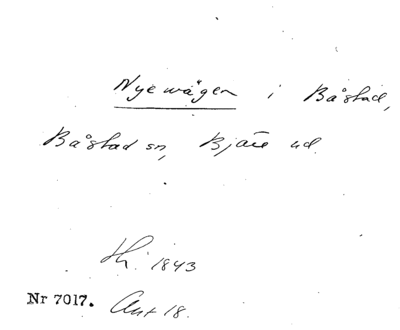 Nyewägen i Båstad,
Båstad sn, Bjäre hd.
Hi. 1843
Nr 7017. Ant 18.